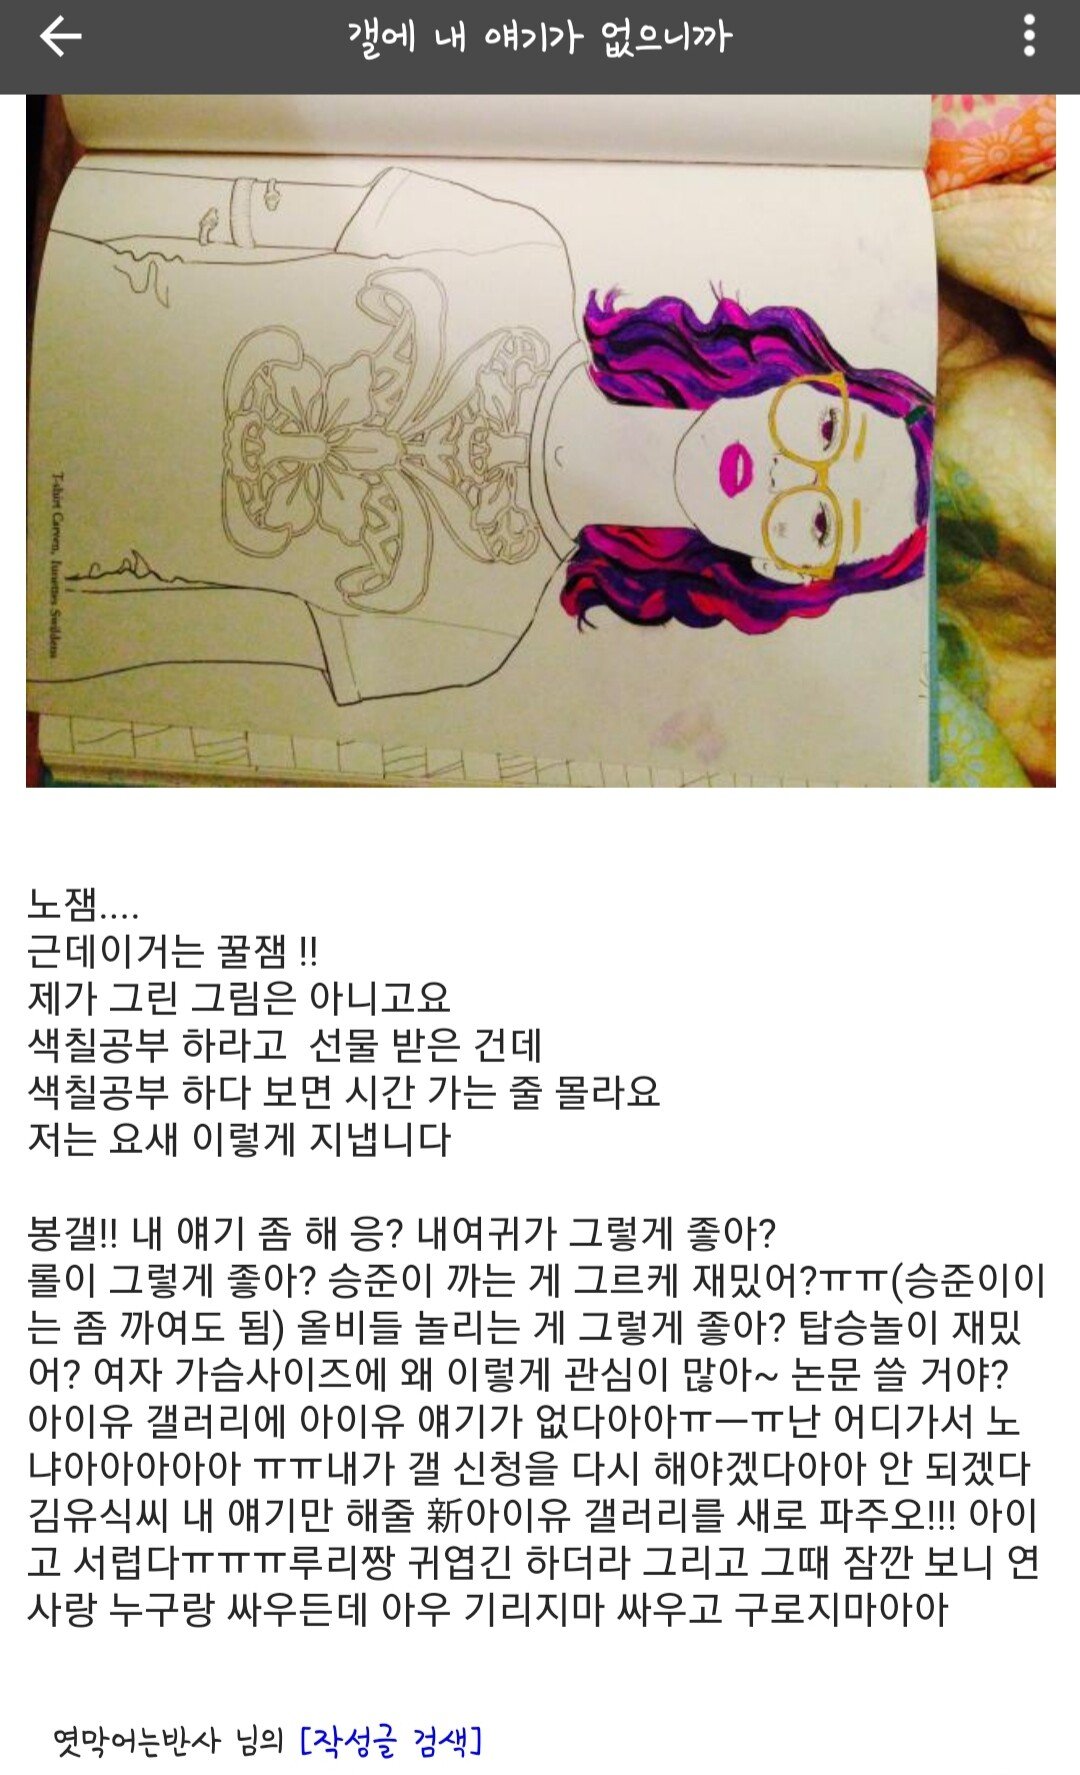 갤에 내 얘기가 없으니까
T-shirt Carven, lunettes Swildens
노잼....
근데이거는 꿀잼 !!
제가 그린 그림은 아니고요
색칠공부 하라고 선물 받은 건데
색칠공부 하다 보면 시간 가는 줄 몰라요
저는 요새 이렇게 지냅니다
봉갤!! 내 얘기 좀 해 응? 내여귀가 그렇게 좋아?
롤이 그렇게 좋아? 승준이 까는 게 그르케 재밌어?ㅠㅠ(승준이이
는 좀 까여도 됨) 올비들 놀리는 게 그렇게 좋아? 탑승놀이 재밌
어? 여자 가슴사이즈에 왜 이렇게 관심이 많아~ 논문 쓸 거야?
아이유 갤러리에 아이유 얘기가 없다아아ㅠㅡㅠ난 어디가서 노
냐아아아아아 ㅠㅠ내가 갤 신청을 다시 해야겠다아아 안 되겠다
김유식씨 내 얘기만 해줄 新아이유 갤러리를 새로 파주오!!! 아이
고 서럽다ㅠㅠㅠ루리짱 귀엽긴 하더라 그리고 그때 잠깐 보니 연
사랑 누구랑 싸우든데 아우 기리지마 싸우고 구로지마아아
엿막어는반사 님의 [작성글 검색]